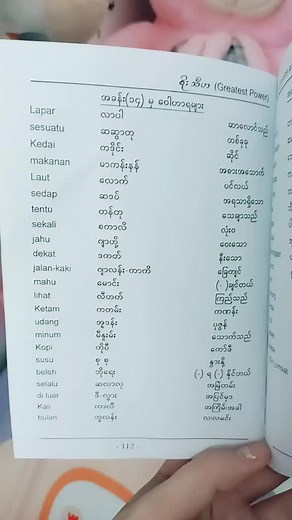 စိုး သီဟ (Greatest Power)
အခန်း(၁၄) မှ ဝေါဟာရများ
Lapar လာပါ ဆာလောင်သည်
sesuatu ဆဆွာတု တစ်ခုခု
Kedai ကဒိုင်း ဆိုင်
makanan မာကန်းနန် အစားအသောက်
Laut လောက် ပင်လယ်
sedap ဆဒပ် အရသာရှိသော
tentu တန်တု သေချာသည်
sekali စကာလီ လုံးဝ
jahu ဂျာဟို့ ဝေးသော
dekat ဒကတ် နီးသော
jalan-kaki ဂျာလန်း-ကာကီ ခြေကျင်
mahu မောင်း (-) ချင်တယ်
lihat လီဟတ် ကြည့်သည်
Ketam ကတမ်း ကဏန်း
udang အူဒန်း ပုဇွန်
minum မီနွမ်း သောက်သည်
Kopi ကိုပီ ကော်ဖီ
susu စု စု နွားနို့
beloh ဘိုရေး (-) ရ (-) နိုင်တယ်
selalu ဆလာလု အမြဲတမ်း
di luar ဒီ-လွား အပြင်မှာ
Kali ကာလီ အကြိမ်၊အခါ
bulan ဘူလန်း လ၊လမင်း
- 112 -